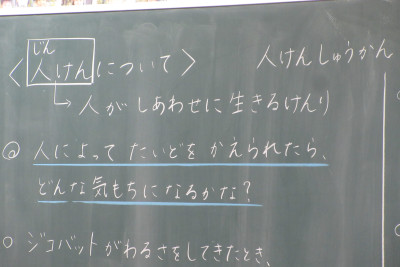 じん
〈人けんについて〉
人けんしゅうかん
→人がしあわせに生きるけんり
◎人によってたいどをかえられたら、
どんな気もちになるかな？
○ジコバットがわるさをしてきたとき、